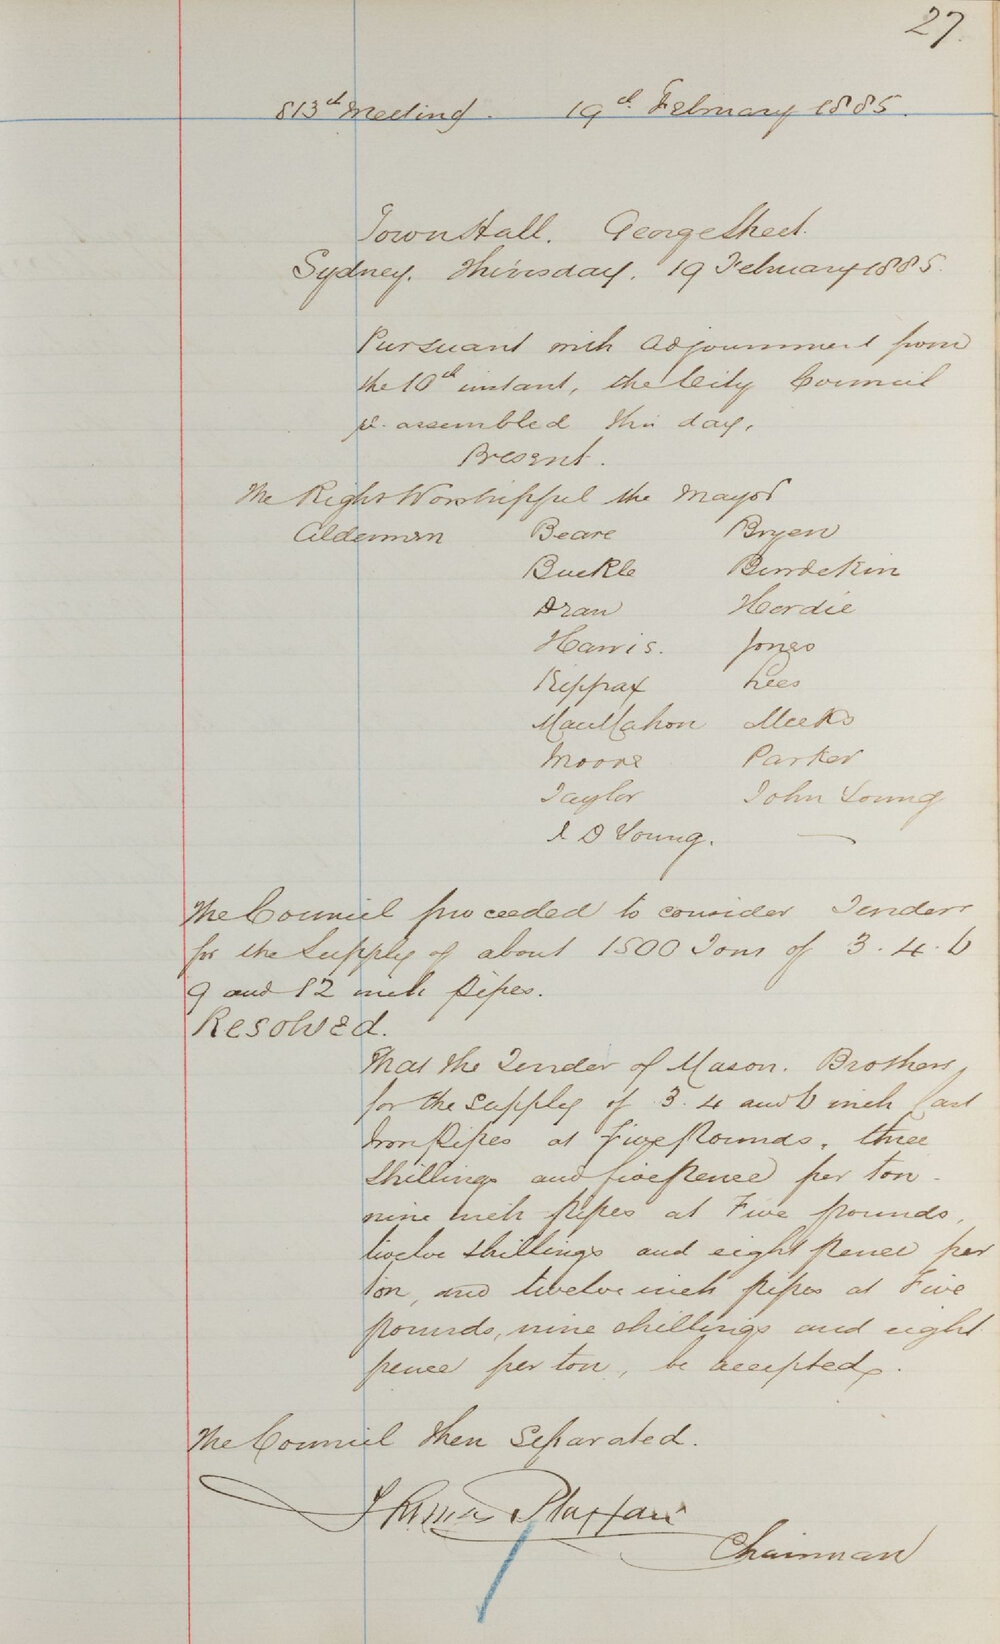 27.
813th Meeting. 19th February 1885.
Town Hall. George Street.
Sydney. Thursday. 19 February 1885.
Pursuant with adjournment from
the 10th instant, the City Council
re-assembled this day.
Present.
The Right Worshipful the Mayor
Aldermen Beare Bryen
Buckle Burdekin
Dean Hordie
Harris. Jones
Kippax Lees
MacMahon Meeks
Moore Parker
Taylor John Young
J D Young.
The Council proceeded to consider Tenders
for the Supply of about 1500 Tons of 3. 4. 6
9 and 12 inch pipes.
Resolved.
That the Tender of Mason. Brothers,
for the supply of 3. 4 and 6 inch Cast
Iron Pipes at Five Pounds, three
Shillings and five Pence per ton -
nine inch pipes at Five pounds,
twelve shillings and eight pence per
ton, and twelve inch pipes at Five
pounds, nine shillings and eight
pence per ton, be accepted.
The Council then separated.
Thomas Playfair
Chairman